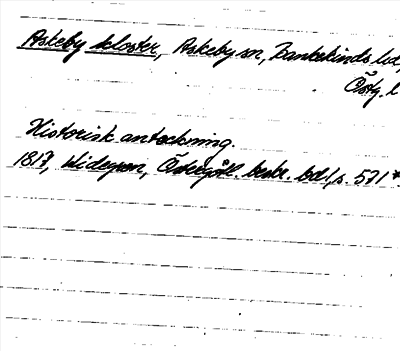 Askeby kloster, Askeby sn, Bankekinds hd,
Östg. l
Historisk anteckning.
1817, Widegren, Östergötl. beskr. bd 1, s. 571